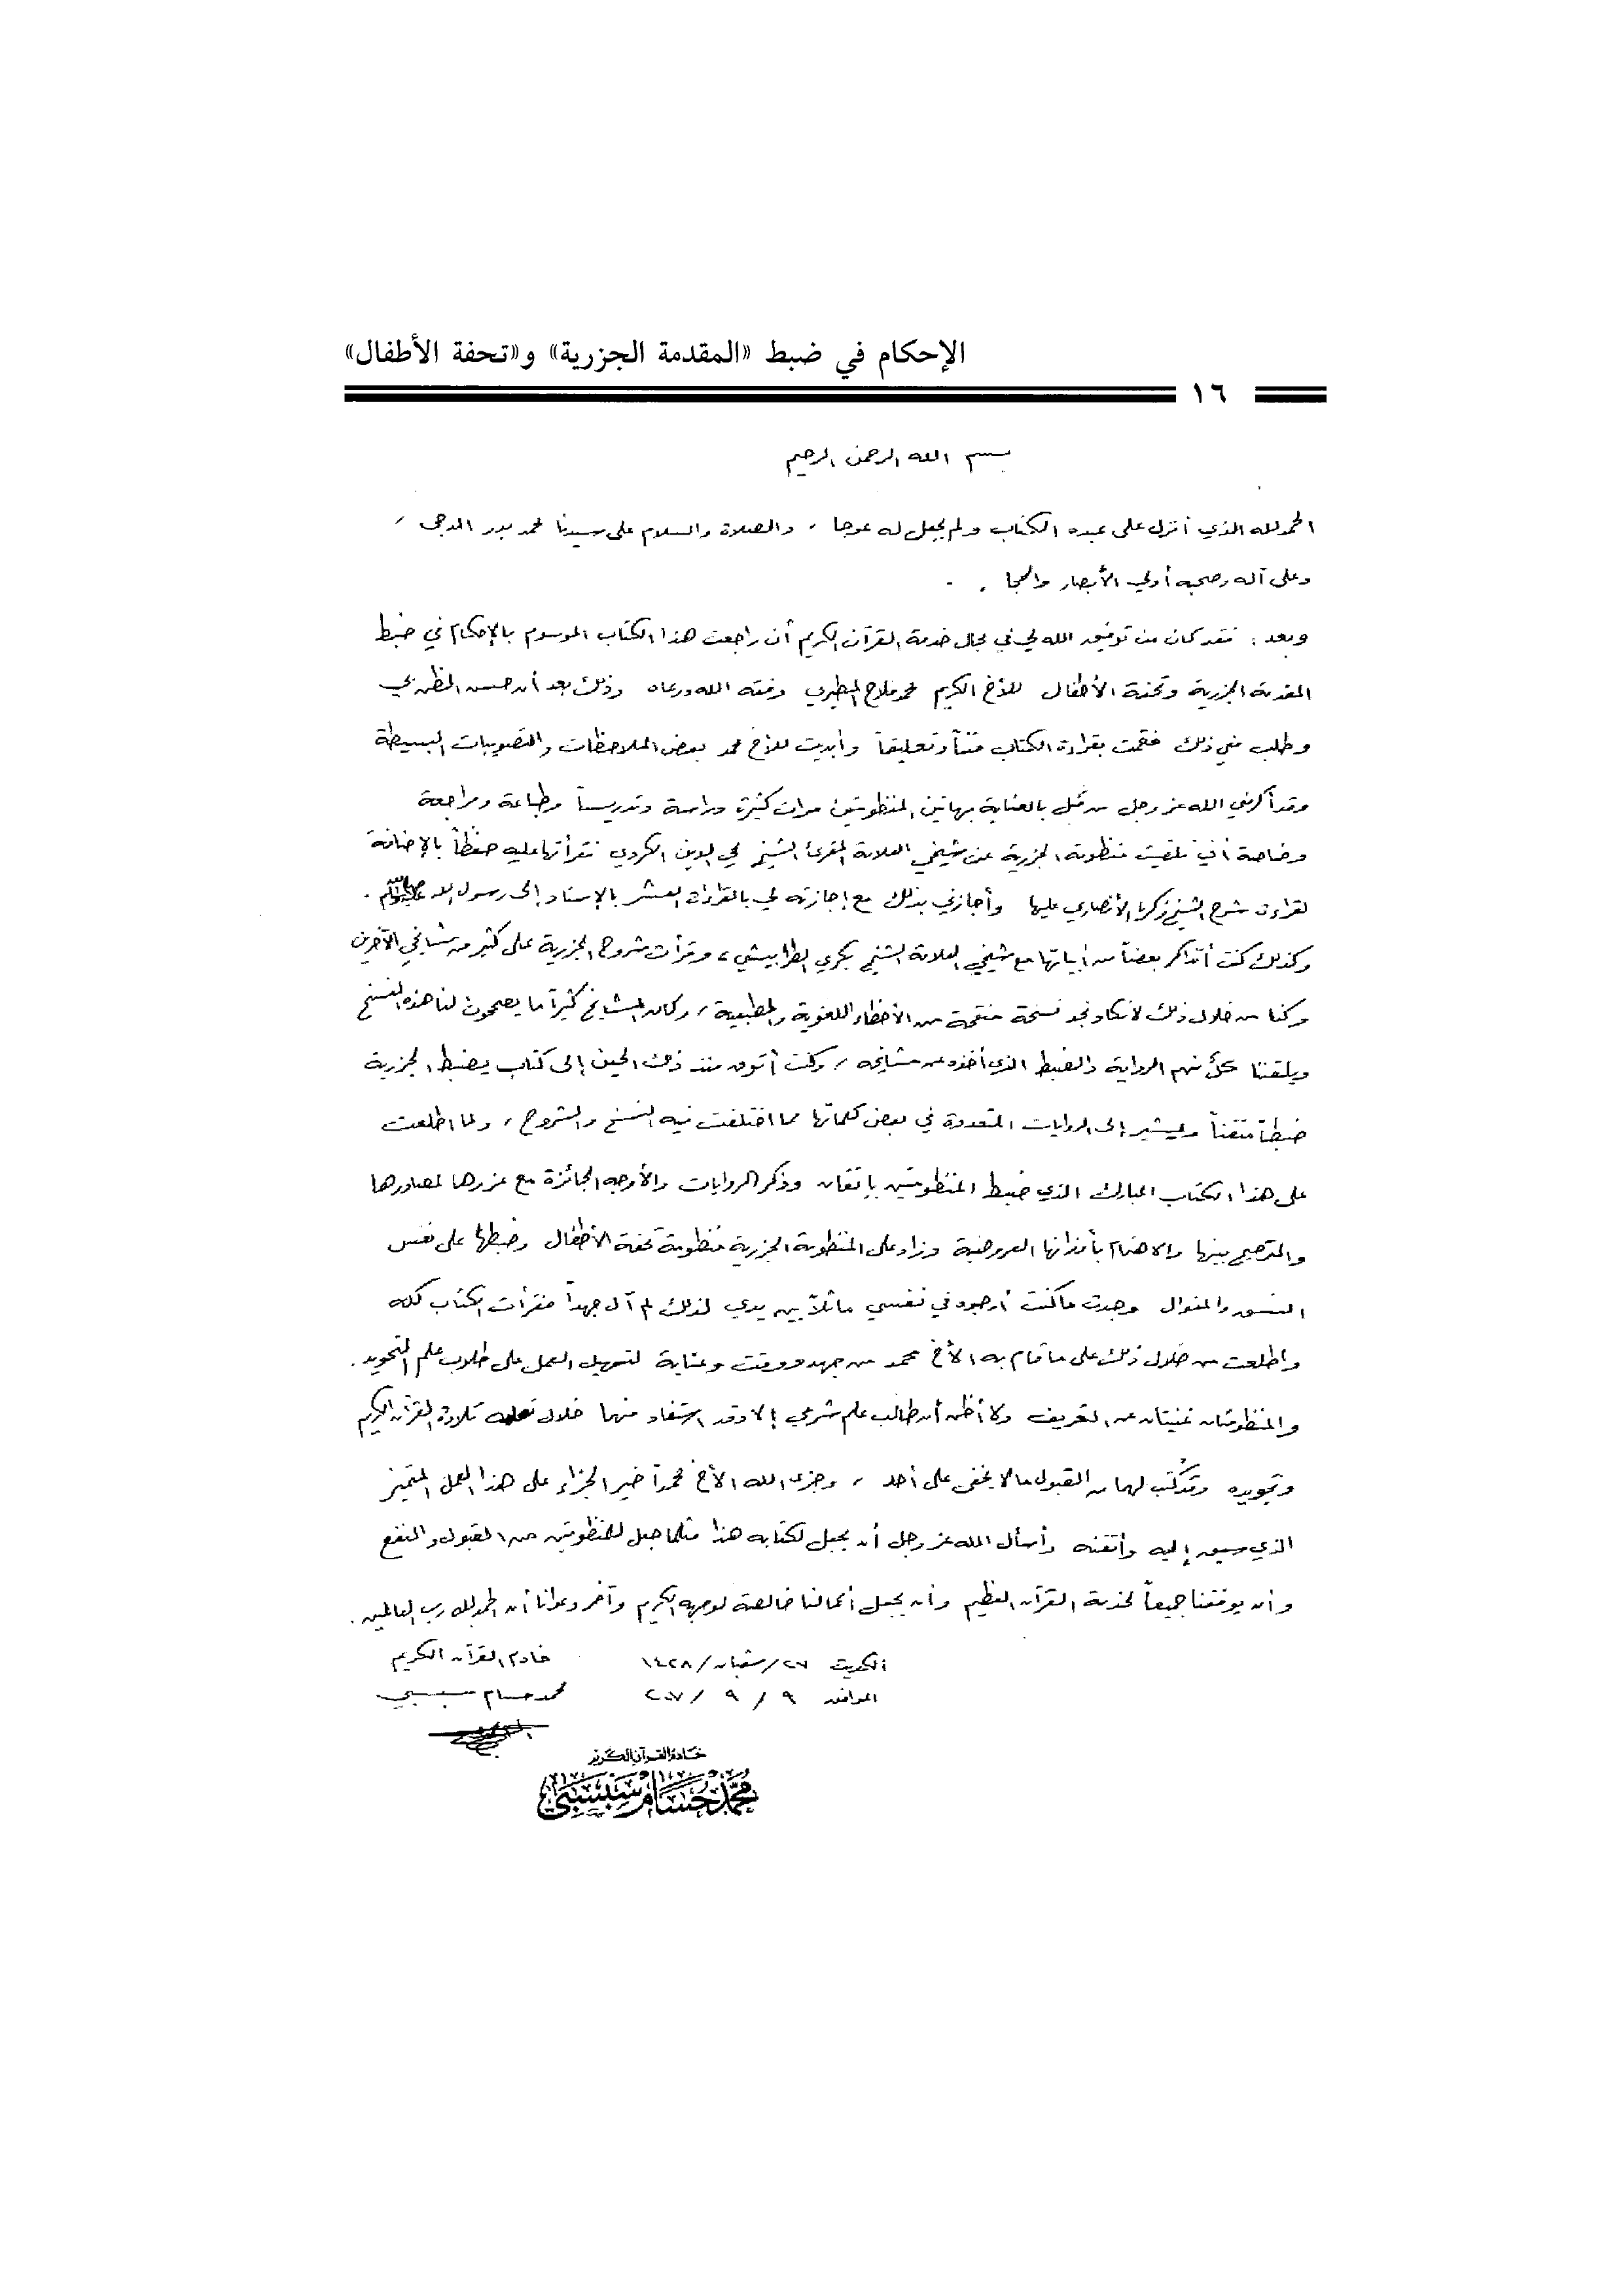 الإحكام في ضبط «المقدمة الجزرية» و«تحفة الأطفال»
١٦
بسم الله الرحمن الرحيم
الحمد لله الذي أنزل على عبده الكتاب ولم يجعل له عوجا ، والصلاة والسلام على سيدنا محمد بدر الدجى ،
وعلى آله وصحبه أولي الأبصار والحجا . -
وبعد : فقد كان من توفيق الله لي في مجال خدمة القرآن الكريم أن راجعت هذا الكتاب الموسوم بالإحكام في ضبط
المقدمة الجزرية وتحفة الأطفال للأخ الكريم محمد فلاح المطيري وفقه الله ورعاه وذلك بعد أن حسن الظن بي
وطلب مني ذلك فقمت بقراءة الكتاب متناً وتعليقاً وأبديت للأخ محمد بعض الملاحظات والتصويبات البسيطة
وقد أكرمني الله عز وجل من قبل بالعناية بهاتين المنظومتين مرات كثيرة دراسة وتدريساً وطباعة ومراجعة
وخاصة أني تلقيت منظومة الجزرية عن شيخي العلامة المقرئ الشيخ محي الدين الكردي فقرأتها عليه حفظاً بالإضافة
لقراءة شرح الشيخ زكريا الأنصاري عليها وأجازني بذلك مع إجازته لي بالقراءات العشر بالإسناد إلى رسول الله ﷺ .
وكذلك كنت أتذاكر بعضاً من أبياتها مع شيخي العلامة الشيخ بكري الطرابيشي ، وقرأت شروح الجزرية على كثير من مشايخي الآخرين
وكنا من خلال ذلك لا نكاد نجد نسخة منقحة من الأخطاء اللغوية والمطبعية ، وكان المشايخ كثيراً ما يصححون لنا هذه النسخ
ويلقننا كلٌّ منهم الرواية والضبط الذي أخذه عن مشايخه ، وكنت أتوق منذ ذلك الحين إلى كتاب يضبط الجزرية
ضبطاً متقناً ويشير إلى الروايات المتعددة في بعض كلماتها مما اختلفت فيه النسخ والشروح ، ولما اطلعت
على هذا الكتاب المبارك الذي ضبط المنظومتين بإتقان وذكر الروايات والأوجه الجائزة مع عزوها لمصادرها
والترجيح بينها والاهتمام بأوزانها العروضية وزاد على المنظومة الجزرية منظومة تحفة الأطفال وضبطها على نفس
النسق والمنوال وجدت ما كنت أرجوه في نفسي ماثلاً بين يدي لذلك لم آل جهداً فقرأت الكتاب كله
واطلعت من خلال ذلك على ما قام به الأخ محمد من جهد ووقت وعناية لتسهيل العمل على طلاب علم التجويد .
والمنظومتان غنيتان عن التعريف ولا أظن أن طالب علم شرعي إلا وقد استفاد منهما خلال تعلمه تلاوة القرآن الكريم
وتجويده وقد كُتب لهما من القبول ما لا يخفى على أحد ، وجزى الله الأخ محمداً خير الجزاء على هذا العمل المتميز
الذي سبق إليه وأتقنه وأسأل الله عز وجل أن يجعل لكتابه هذا مثلما جعل للمنظومتين من القبول والنفع
وأن يوفقنا جميعاً لخدمة القرآن العظيم وأن يجعل أعمالنا خالصة لوجهه الكريم وآخر دعوانا أن الحمد لله رب العالمين .
الكويت ٢٧/شعبان/١٤٢٨ خادم القرآن الكريم
الموافق ٩ / ٩ / ٢٠٠٧ محمد حسام سبسبي
خادم القرآن الكريم
محمد حسام سبسبي